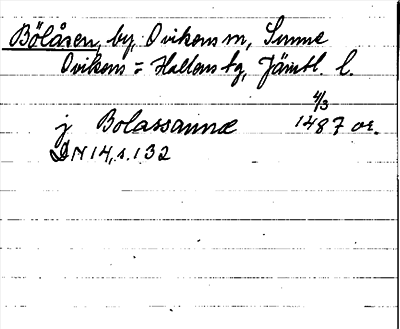 Bölåsen, by, Ovikens sn, Sunne
Ovikens = Hallens tg, Jämtl. l.
4/3
j Bolassanne 1487 or.
DN 14, s. 132